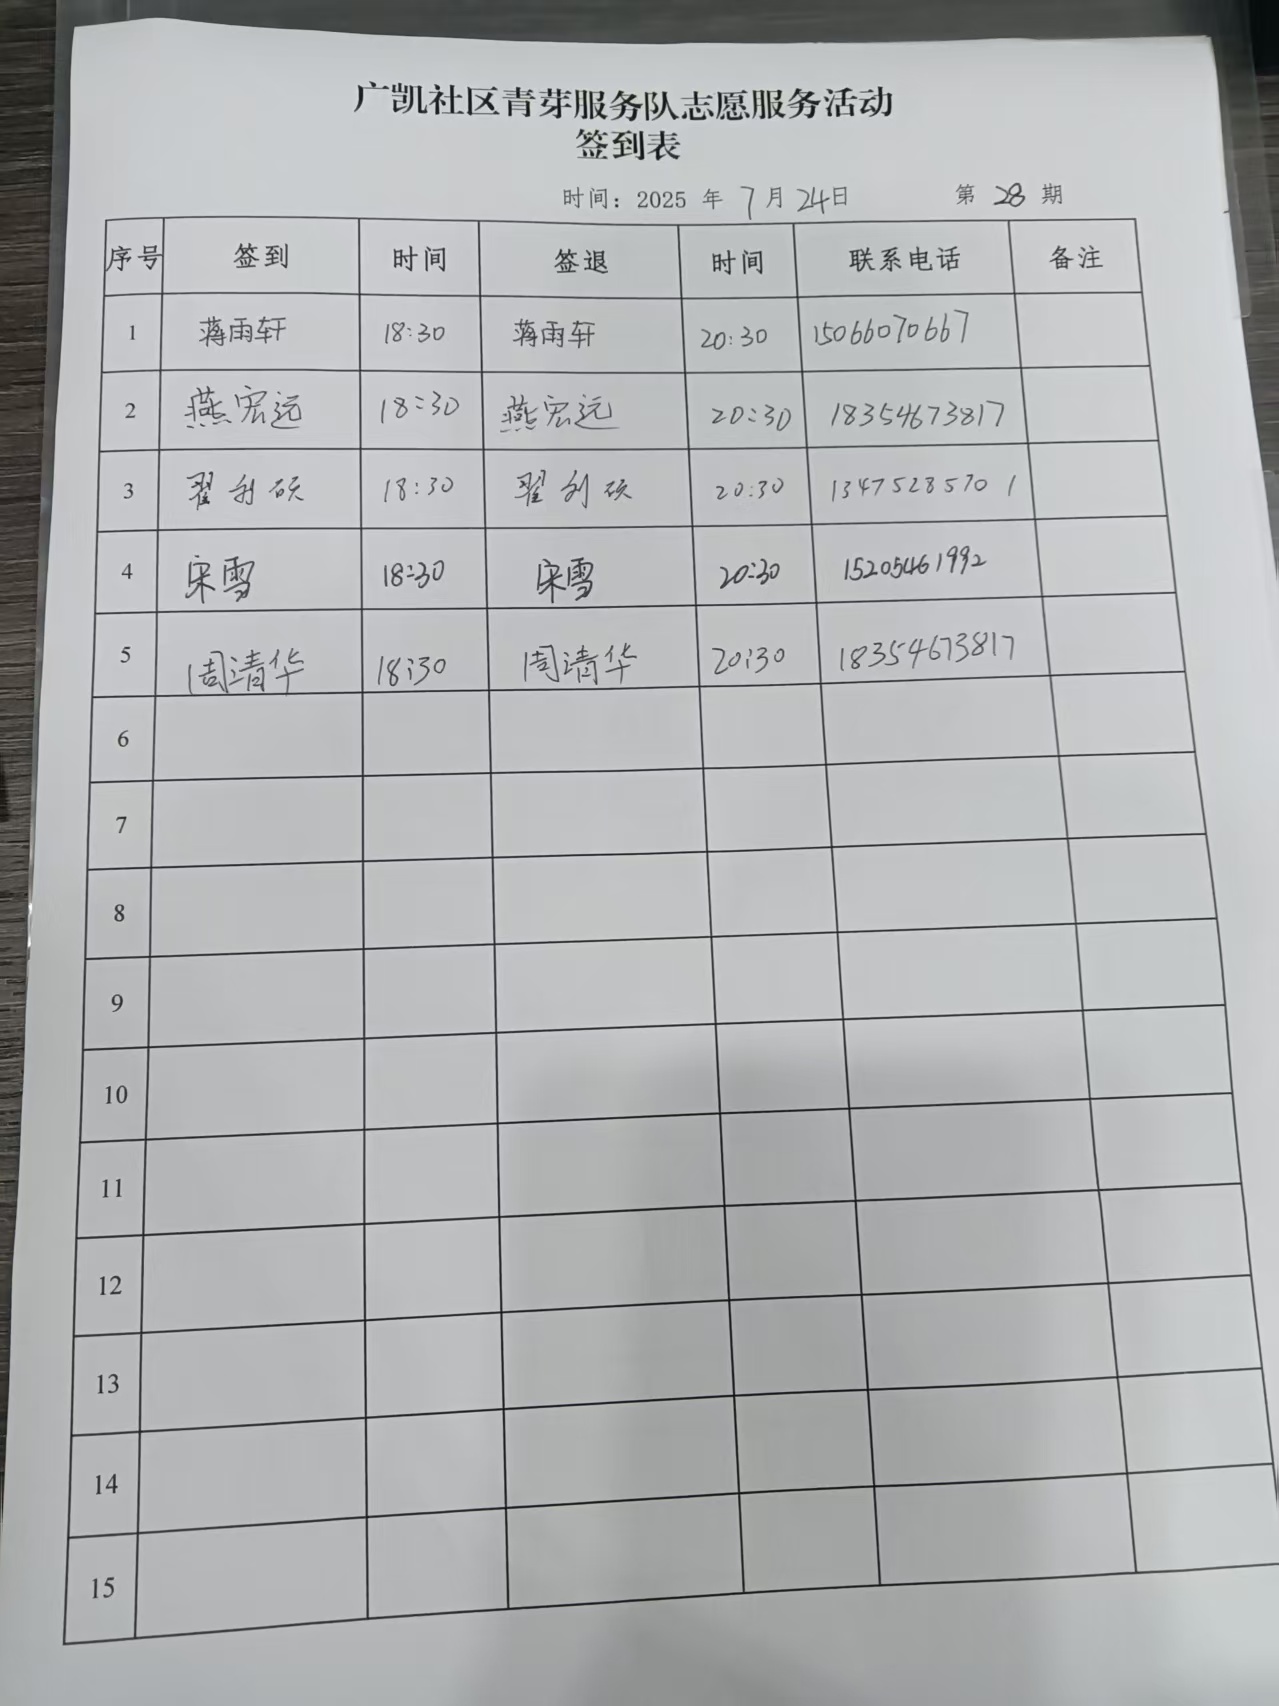 广凯社区青芽服务队志愿服务活动
签到表
时间：2025 年 7 月 24 日 第 28 期
序号 签到 时间 签退 时间 联系电话 备注
1 蒋雨轩 18:30 蒋雨轩 20:30 15066070667
2 燕宏远 18:30 燕宏远 20:30 18354673817
3 翟利硕 18:30 翟利硕 20:30 13475285701
4 宋雪 18:30 宋雪 20:30 15205461992
5 周清华 18:30 周清华 20:30 18354673817
6
7
8
9
10
11
12
13
14
15